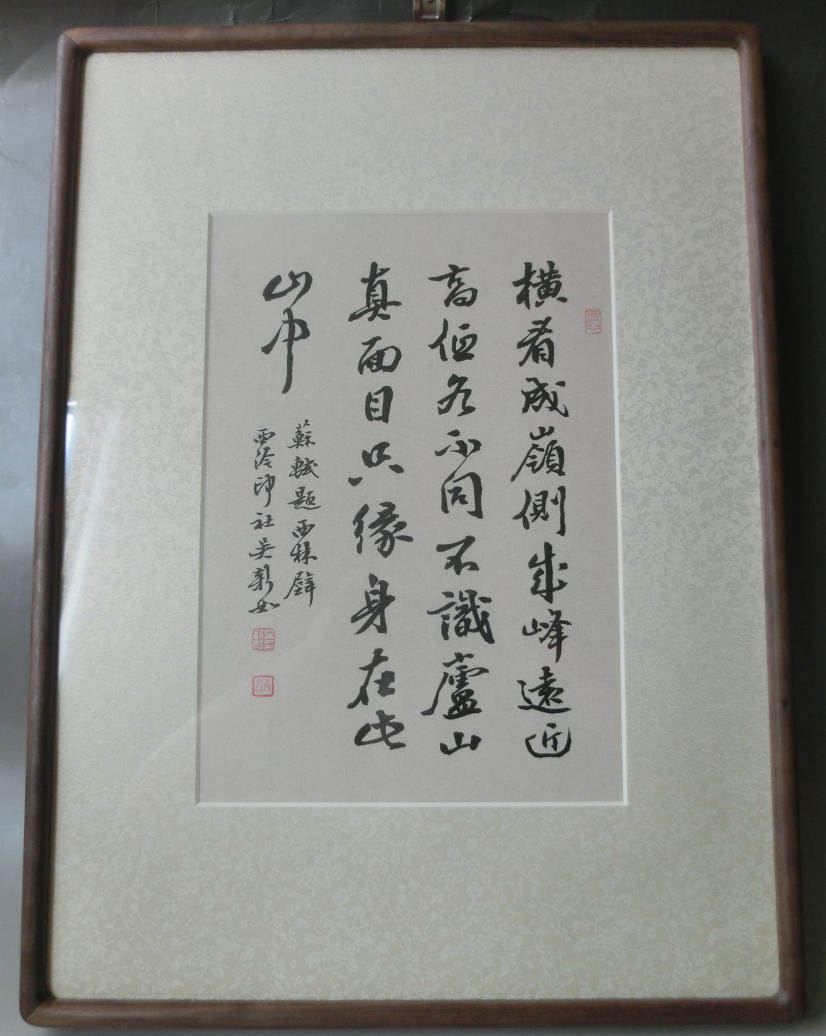 橫看成嶺側成峰遠近
高低各不同不識廬山
真面目只緣身在此
山中
蘇軾題西林壁
西泠印社吳新如